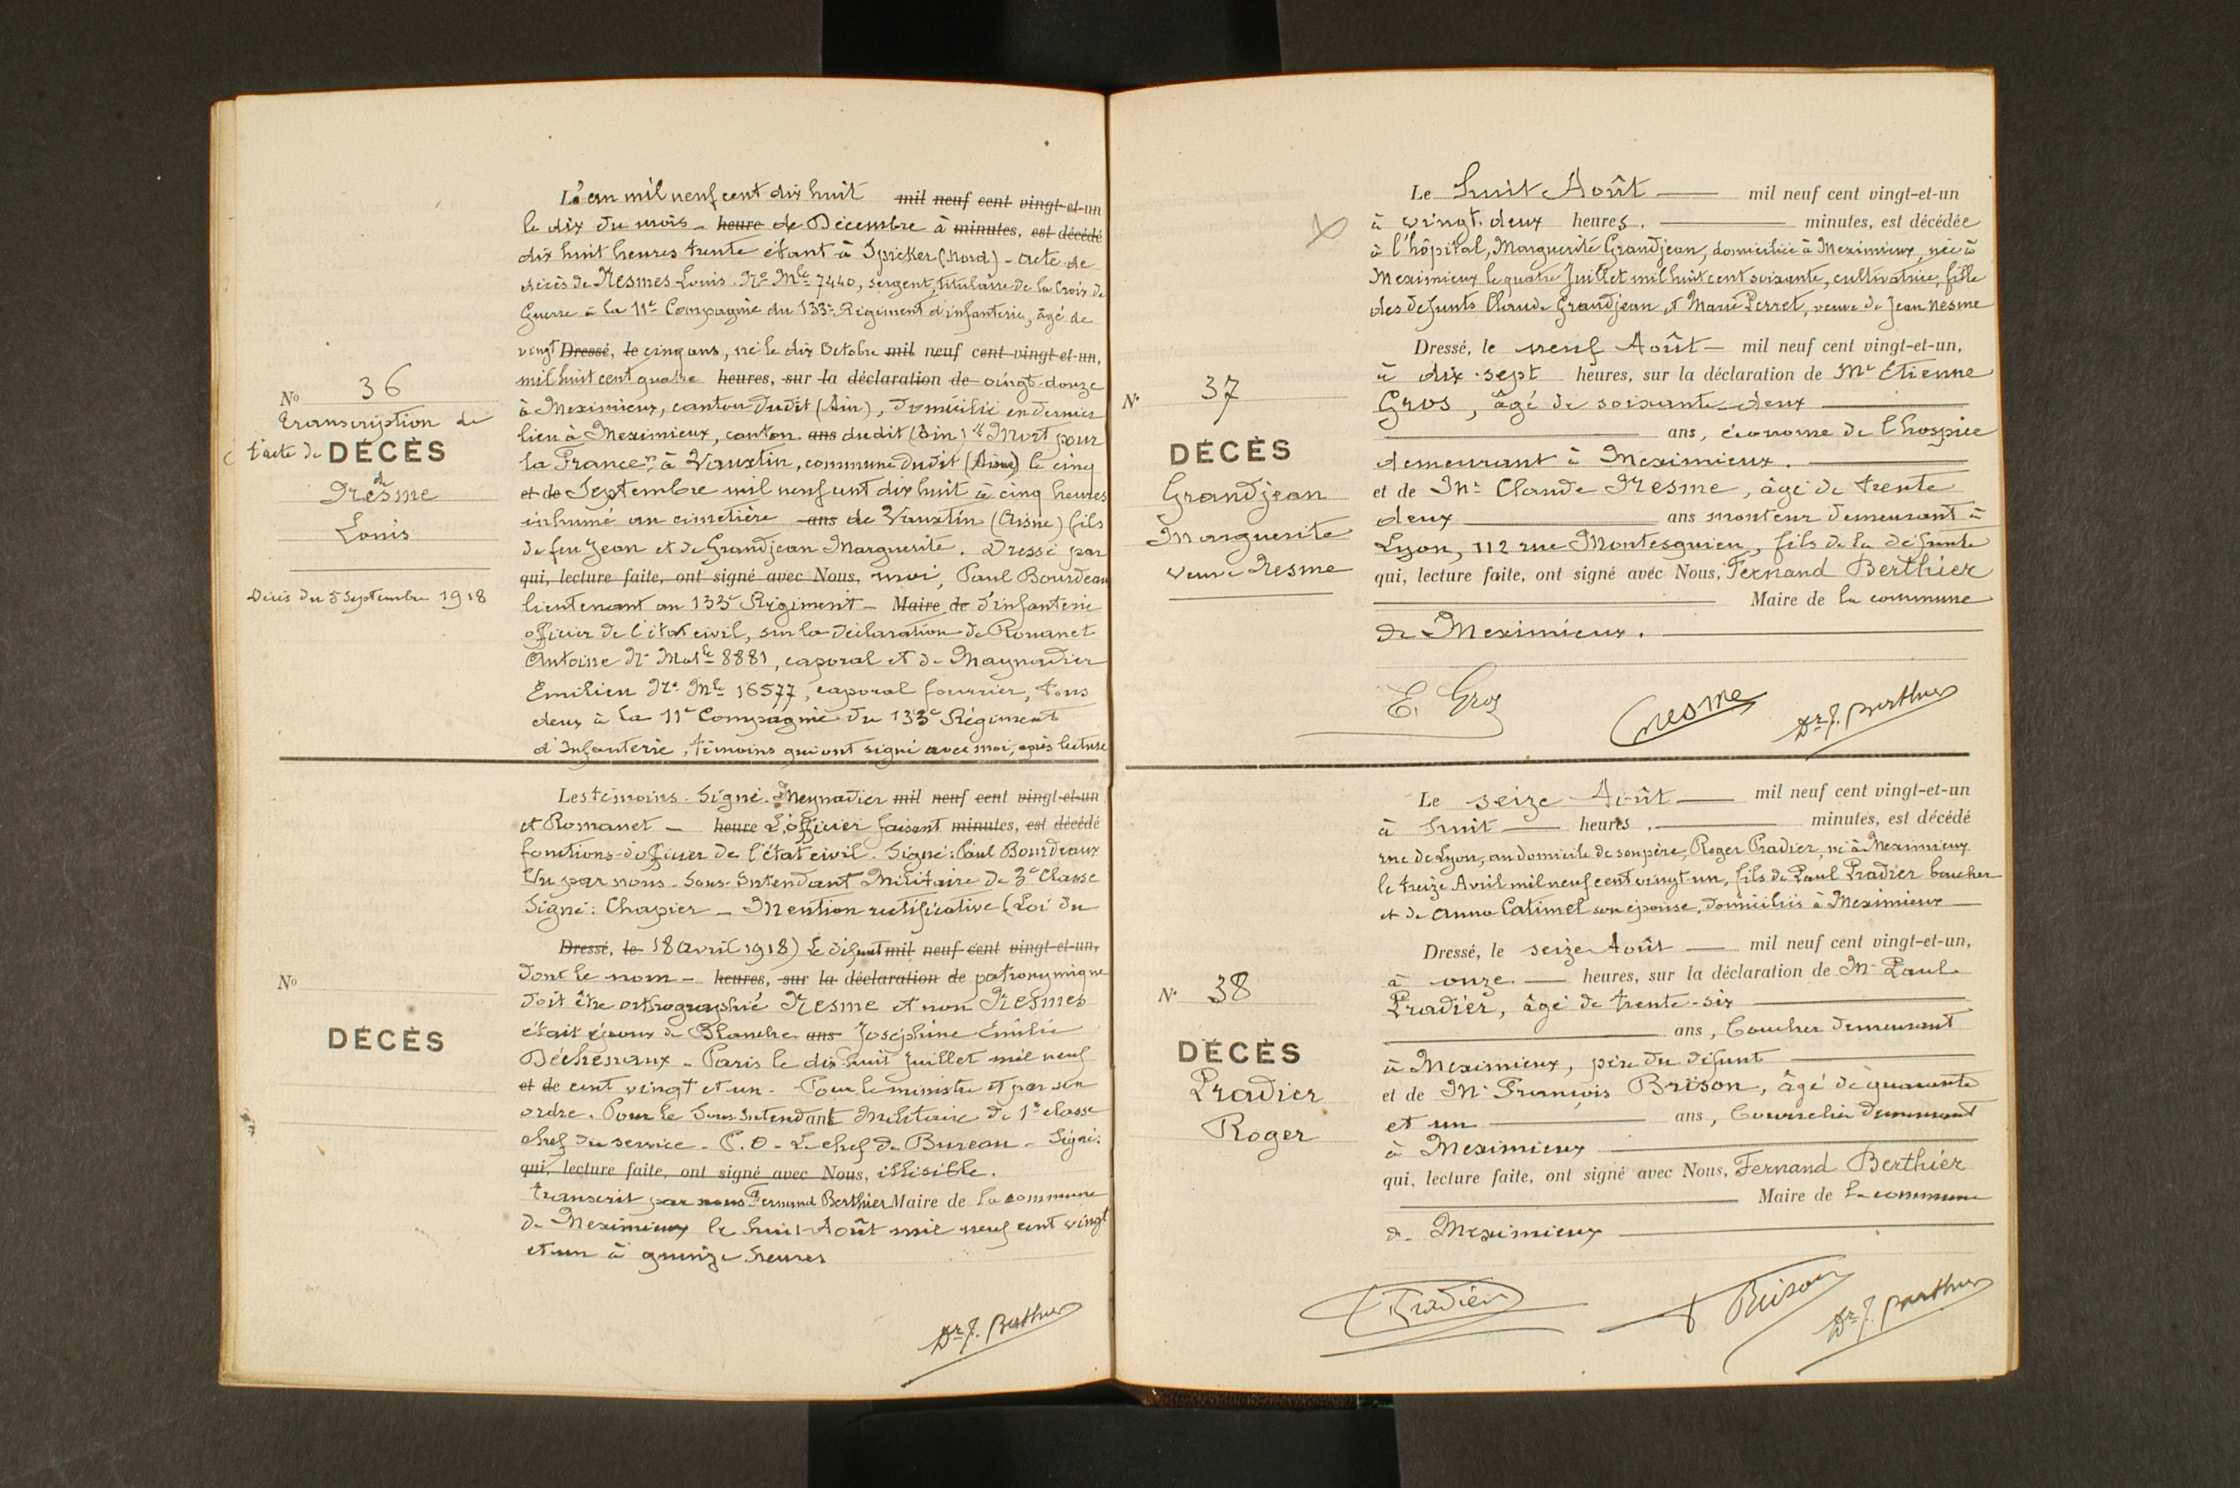 L'an mil neuf cent dix huit mil neuf cent vingt-et-un
le dix du mois - heure de Décembre à minutes, est décédé
dix huit heures trente étant à Spicker (Nord) - acte de
décès de Nesmes Louis. No Mle 7440, sergent, titulaire de la Croix de
Guerre à la 11e Compagnie du 133e Régiment d'infanterie, âgé de
vingt Dressé, le cinq ans, né le dix Octobre mil neuf cent vingt-et-un,
mil huit cent quatre heures, sur la déclaration de vingt-douze
à Meximieux, canton dudit (Ain), domicilié en dernier
lieu à Meximieux, canton ans dudit (Ain) "Mort pour
la France", à Vauxtin, commune dudit (Aisne) le cinq
et de Septembre mil neuf cent dix huit à cinq heures
inhumé au cimetière ans de Vauxtin (Aisne) fils
de feu Jean et de Grandjean Marguerite. Dressé par
qui, lecture faite, ont signé avec Nous, moi, Paul Bourdeau
lieutenant au 133e Régiment - Maire de d'infanterie
officier de l'état civil, sur la déclaration de Romanet
Antoine No Matle 8881, caporal et de Maynadier
Emilien No Mle 16577, caporal fourrier, tous
deux à la 11e Compagnie du 133e Régiment
d'Infanterie, témoins qui ont signé avec moi, après lecture
No 36
transcription de
l'acte de DÉCÈS
de
Nesme
Louis
Décès du 5 septembre 1918
Les témoins. Signé. Meynadier mil neuf cent vingt-et-un
et Romanet - heure L'officier faisant minutes, est décédé
fonctions d'officier de l'état civil. Signé: Paul Bourdeaux
Vu par nous Sous-Intendant Militaire de 3e Classe
Signé: Chapier - Mention rectificative (Loi du
Dressé, le 18 avril 1918) Le défunt mil neuf cent vingt-et-un,
dont le nom - heures, sur la déclaration de patronymique
doit être orthographié Nesme et non Nesmes
était époux de Blanche ans Joséphine Emilie
Déchenaux - Paris le dix huit Juillet mil neuf
et de cent vingt et un. Pour le ministre et par son
ordre. Pour le Sous-Intendant Militaire de 1re classe
chef du service - P.O - Le chef de Bureau - Signé:
qui, lecture faite, ont signé avec Nous, illisible.
transcrit par nous Fernand Berthier Maire de la commune
de Meximieux le huit Août mil neuf cent vingt
et un à quinze heures
No
DÉCÈS
Dr F. Berthier
Le huit Août mil neuf cent vingt-et-un
à vingt-deux heures, minutes, est décédée
à l'hôpital, Marguerite Grandjean, domiciliée à Meximieux, née à
Meximieux le quatre Juillet mil huit cent soixante, cultivatrice, fille
des defunts Claude Grandjean et Marie Perret, veuve de Jean Nesme
Dressé, le neuf Août mil neuf cent vingt-et-un,
à dix-sept heures, sur la déclaration de Mr Etienne
Gros, âgé de soixante-deux
ans, économe de l'hospice
demeurant à Meximieux.
et de Mr Claude Nesme, âgé de trente
deux ans monteur demeurant à
Lyon, 112 rue Montesquieu, fils de la défunte
qui, lecture faite, ont signé avec Nous, Fernand Berthier
Maire de la commune
de Meximieux.
No 37
DÉCÈS
Grandjean
Marguerite
veuve Nesme
E. Gros
Cnesme
Dr F. Berthier
Le seize Août mil neuf cent vingt-et-un
à huit heures. minutes, est décédé
rue de Lyon, au domicile de son père, Roger Pradier, né à Meximieux
le treize Avril mil neuf cent vingt-un, fils de Paul Pradier boucher
et de Anna Catimel son épouse, domiciliés à Meximieux
Dressé, le seize Août mil neuf cent vingt-et-un,
à onze heures, sur la déclaration de Mr Paul
Pradier, âgé de trente-six
ans, boucher demeurant
à Meximieux, père du défunt
et de Mr François Brison, âgé de quarante
et un ans, demeurant
à Meximieux
qui, lecture faite, ont signé avec Nous, Fernand Berthier
Maire de la commune
de Meximieux
No 38
DÉCÈS
Pradier
Roger
Pradier
Brison
Dr F. Berthier